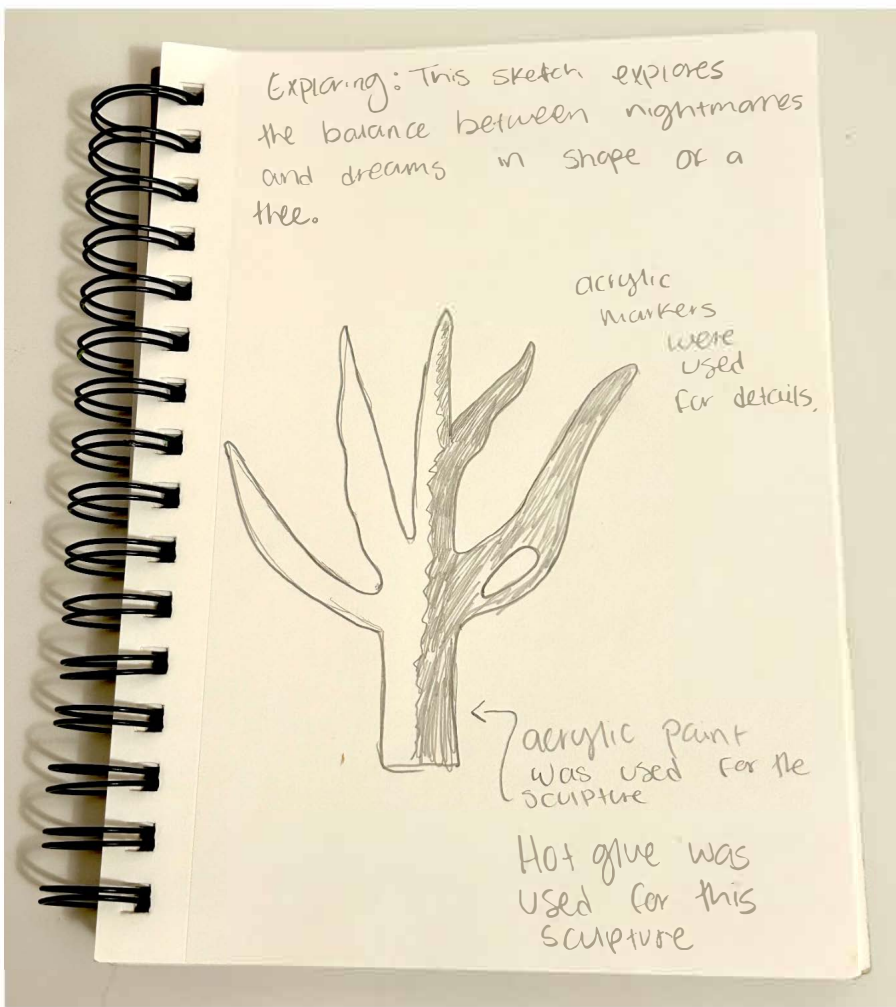 Exploring: This sketch explores
the balance between nightmares
and dreams in shape of a
tree.
acrylic
markers
were
used
for details.
acrylic paint
was used for the
sculpture
Hot glue was
used for this
sculpture